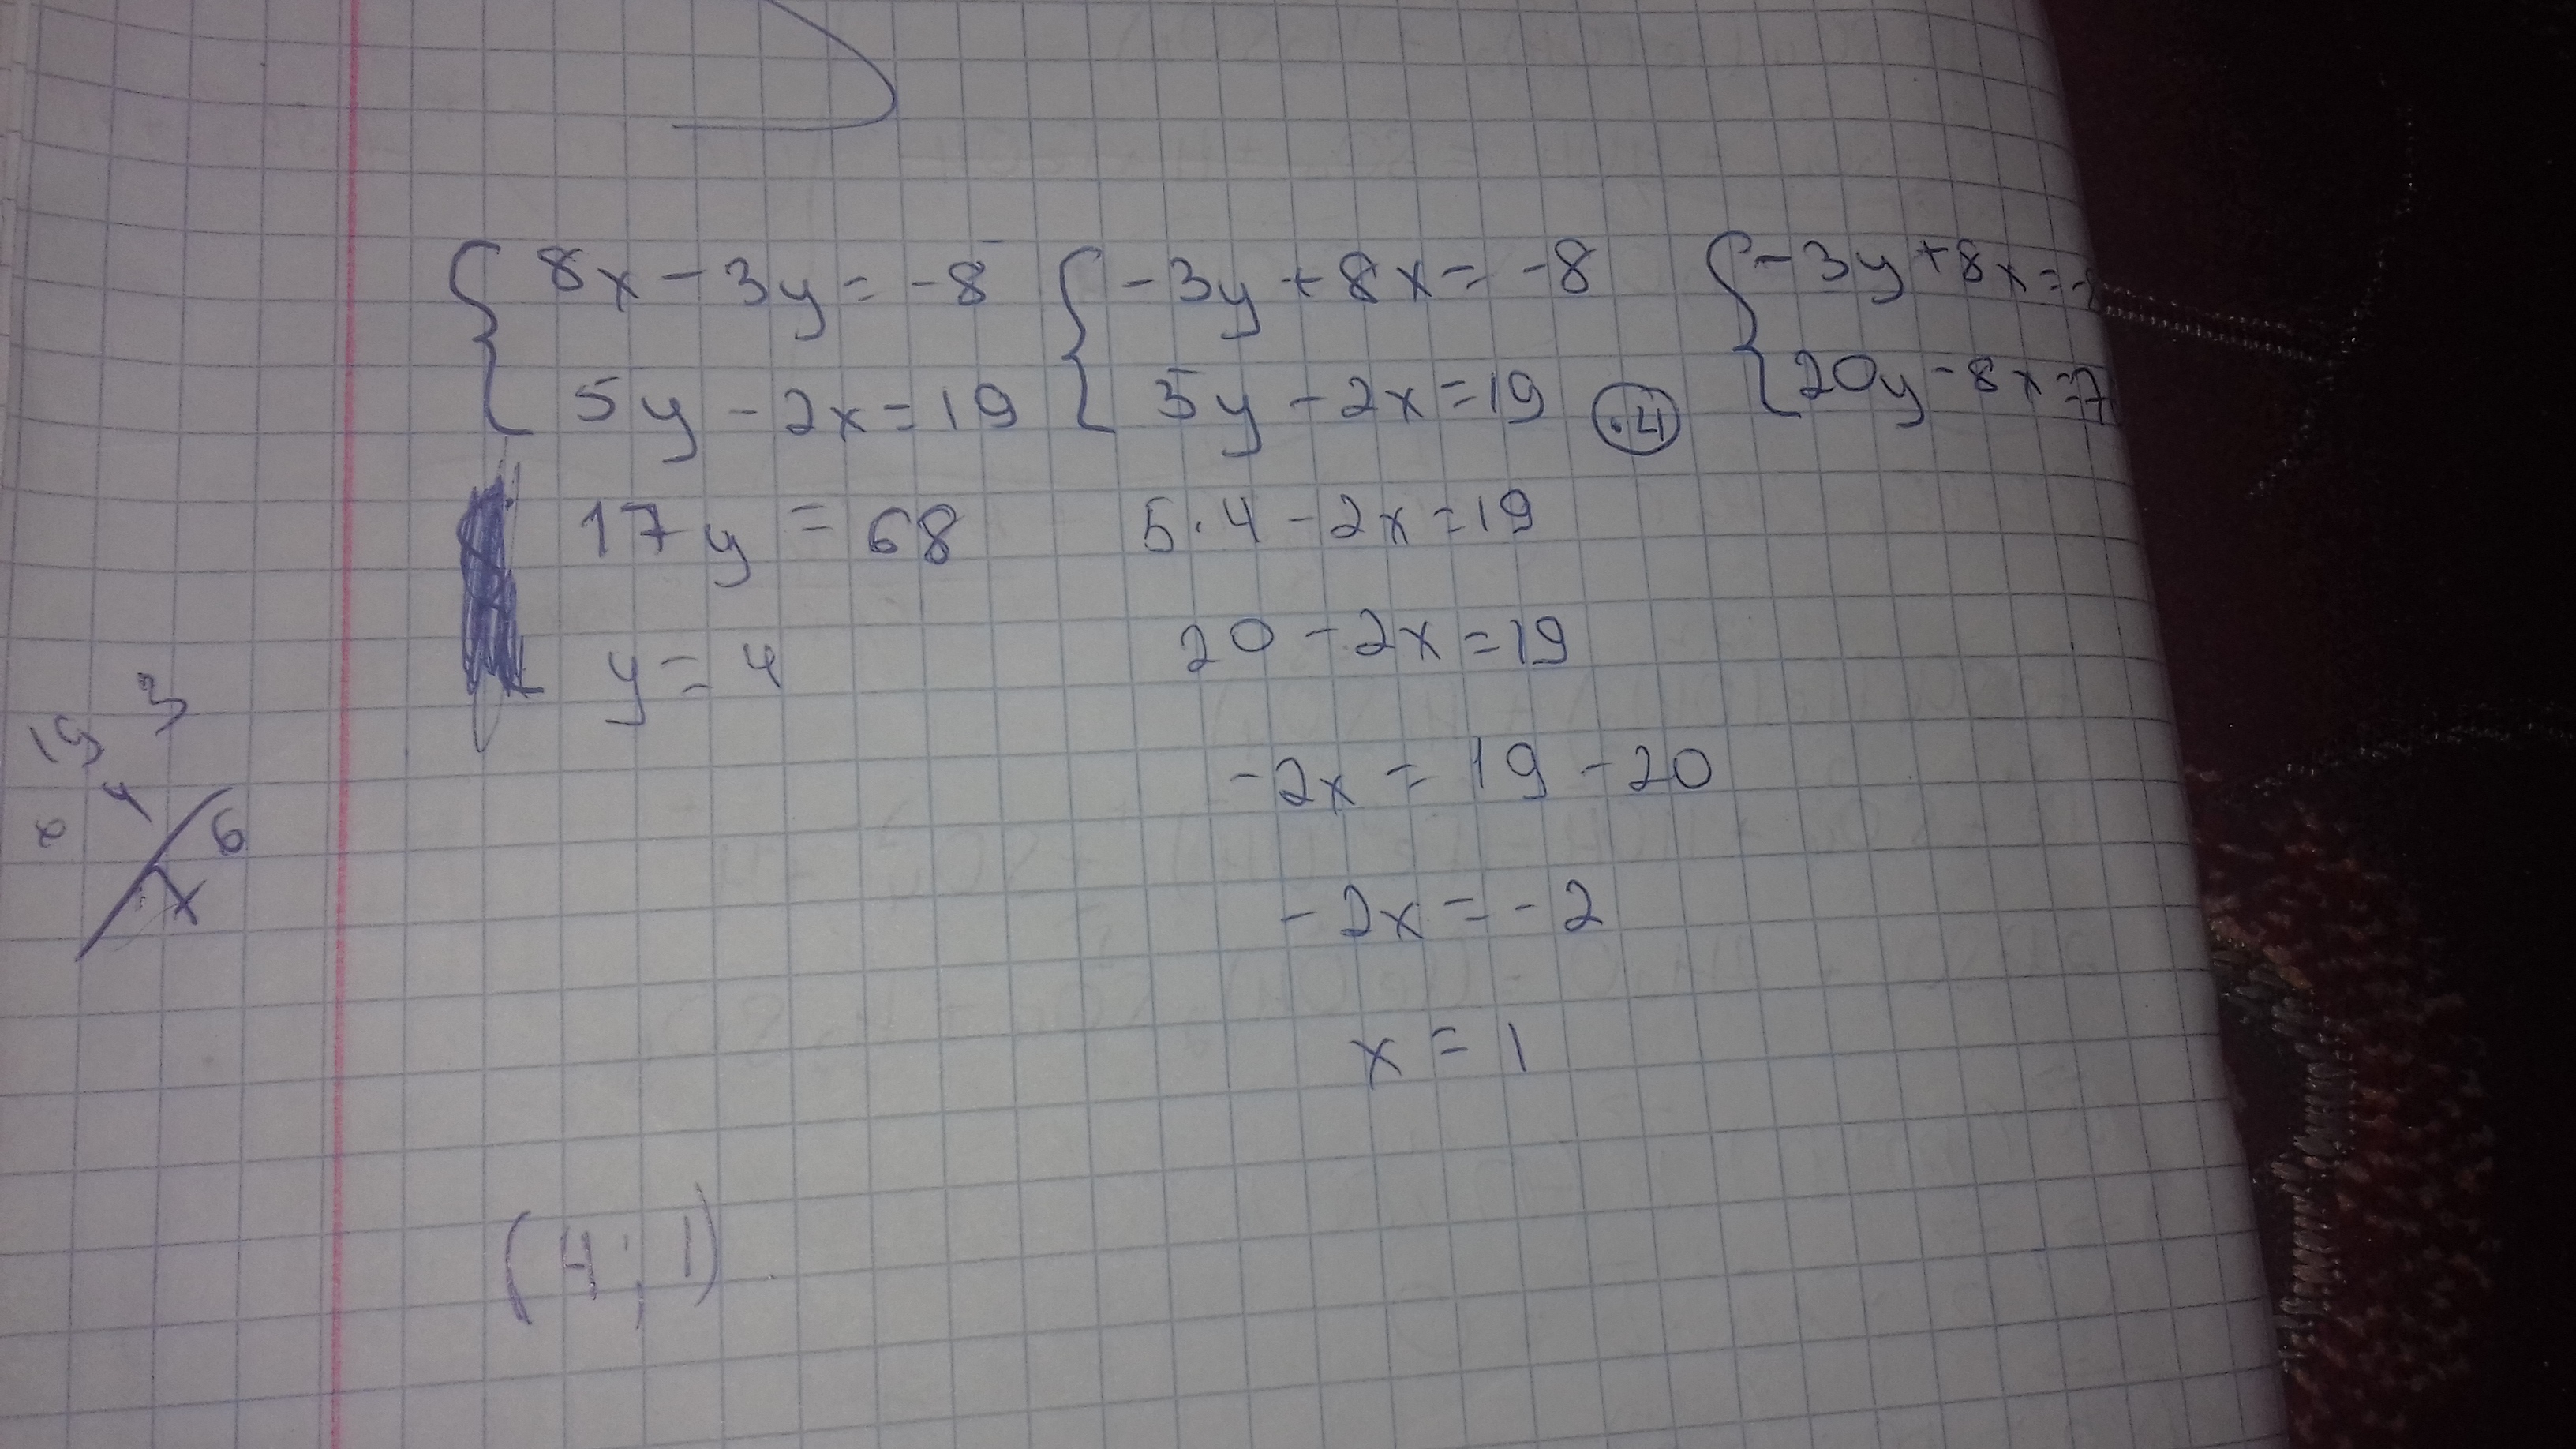 8x - 3y = -8
5y - 2x = 19
-3y + 8x = -8
5y - 2x = 19 (·4)
-3y + 8x = -
20y - 8x = 7
17y = 68
y = 4
5·4 - 2x = 19
20 - 2x = 19
-2x = 19 - 20
-2x = -2
x = 1
19 3
4
6
x
(4; 1)